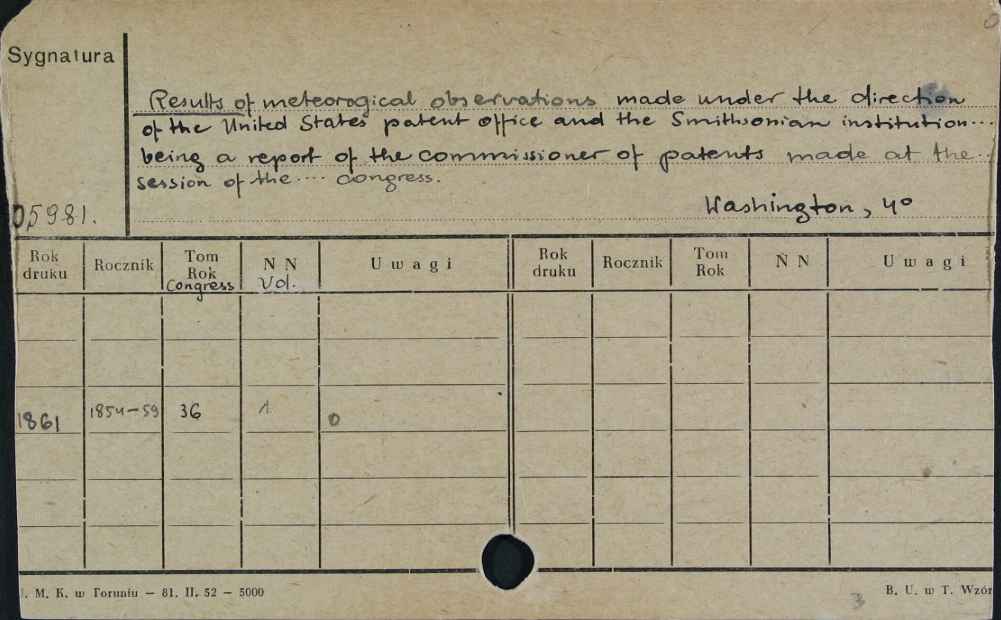 Sygnatura
Results of meteorogical observations made under the direction
of the United States patent office and the Smithsonian institution...
being a report of the commissioner of patents made at the...
session of the .... congress.
05981.
Washington, 4º
Rok druku Rocznik Tom Rok Congress N N Vol. Uwagi Rok druku Rocznik Tom Rok N N Uwagi
1861 1854-59 36 1 0
. M. K. w Toruniu — 81. II. 52 — 5000
B. U. w T. Wzór
3